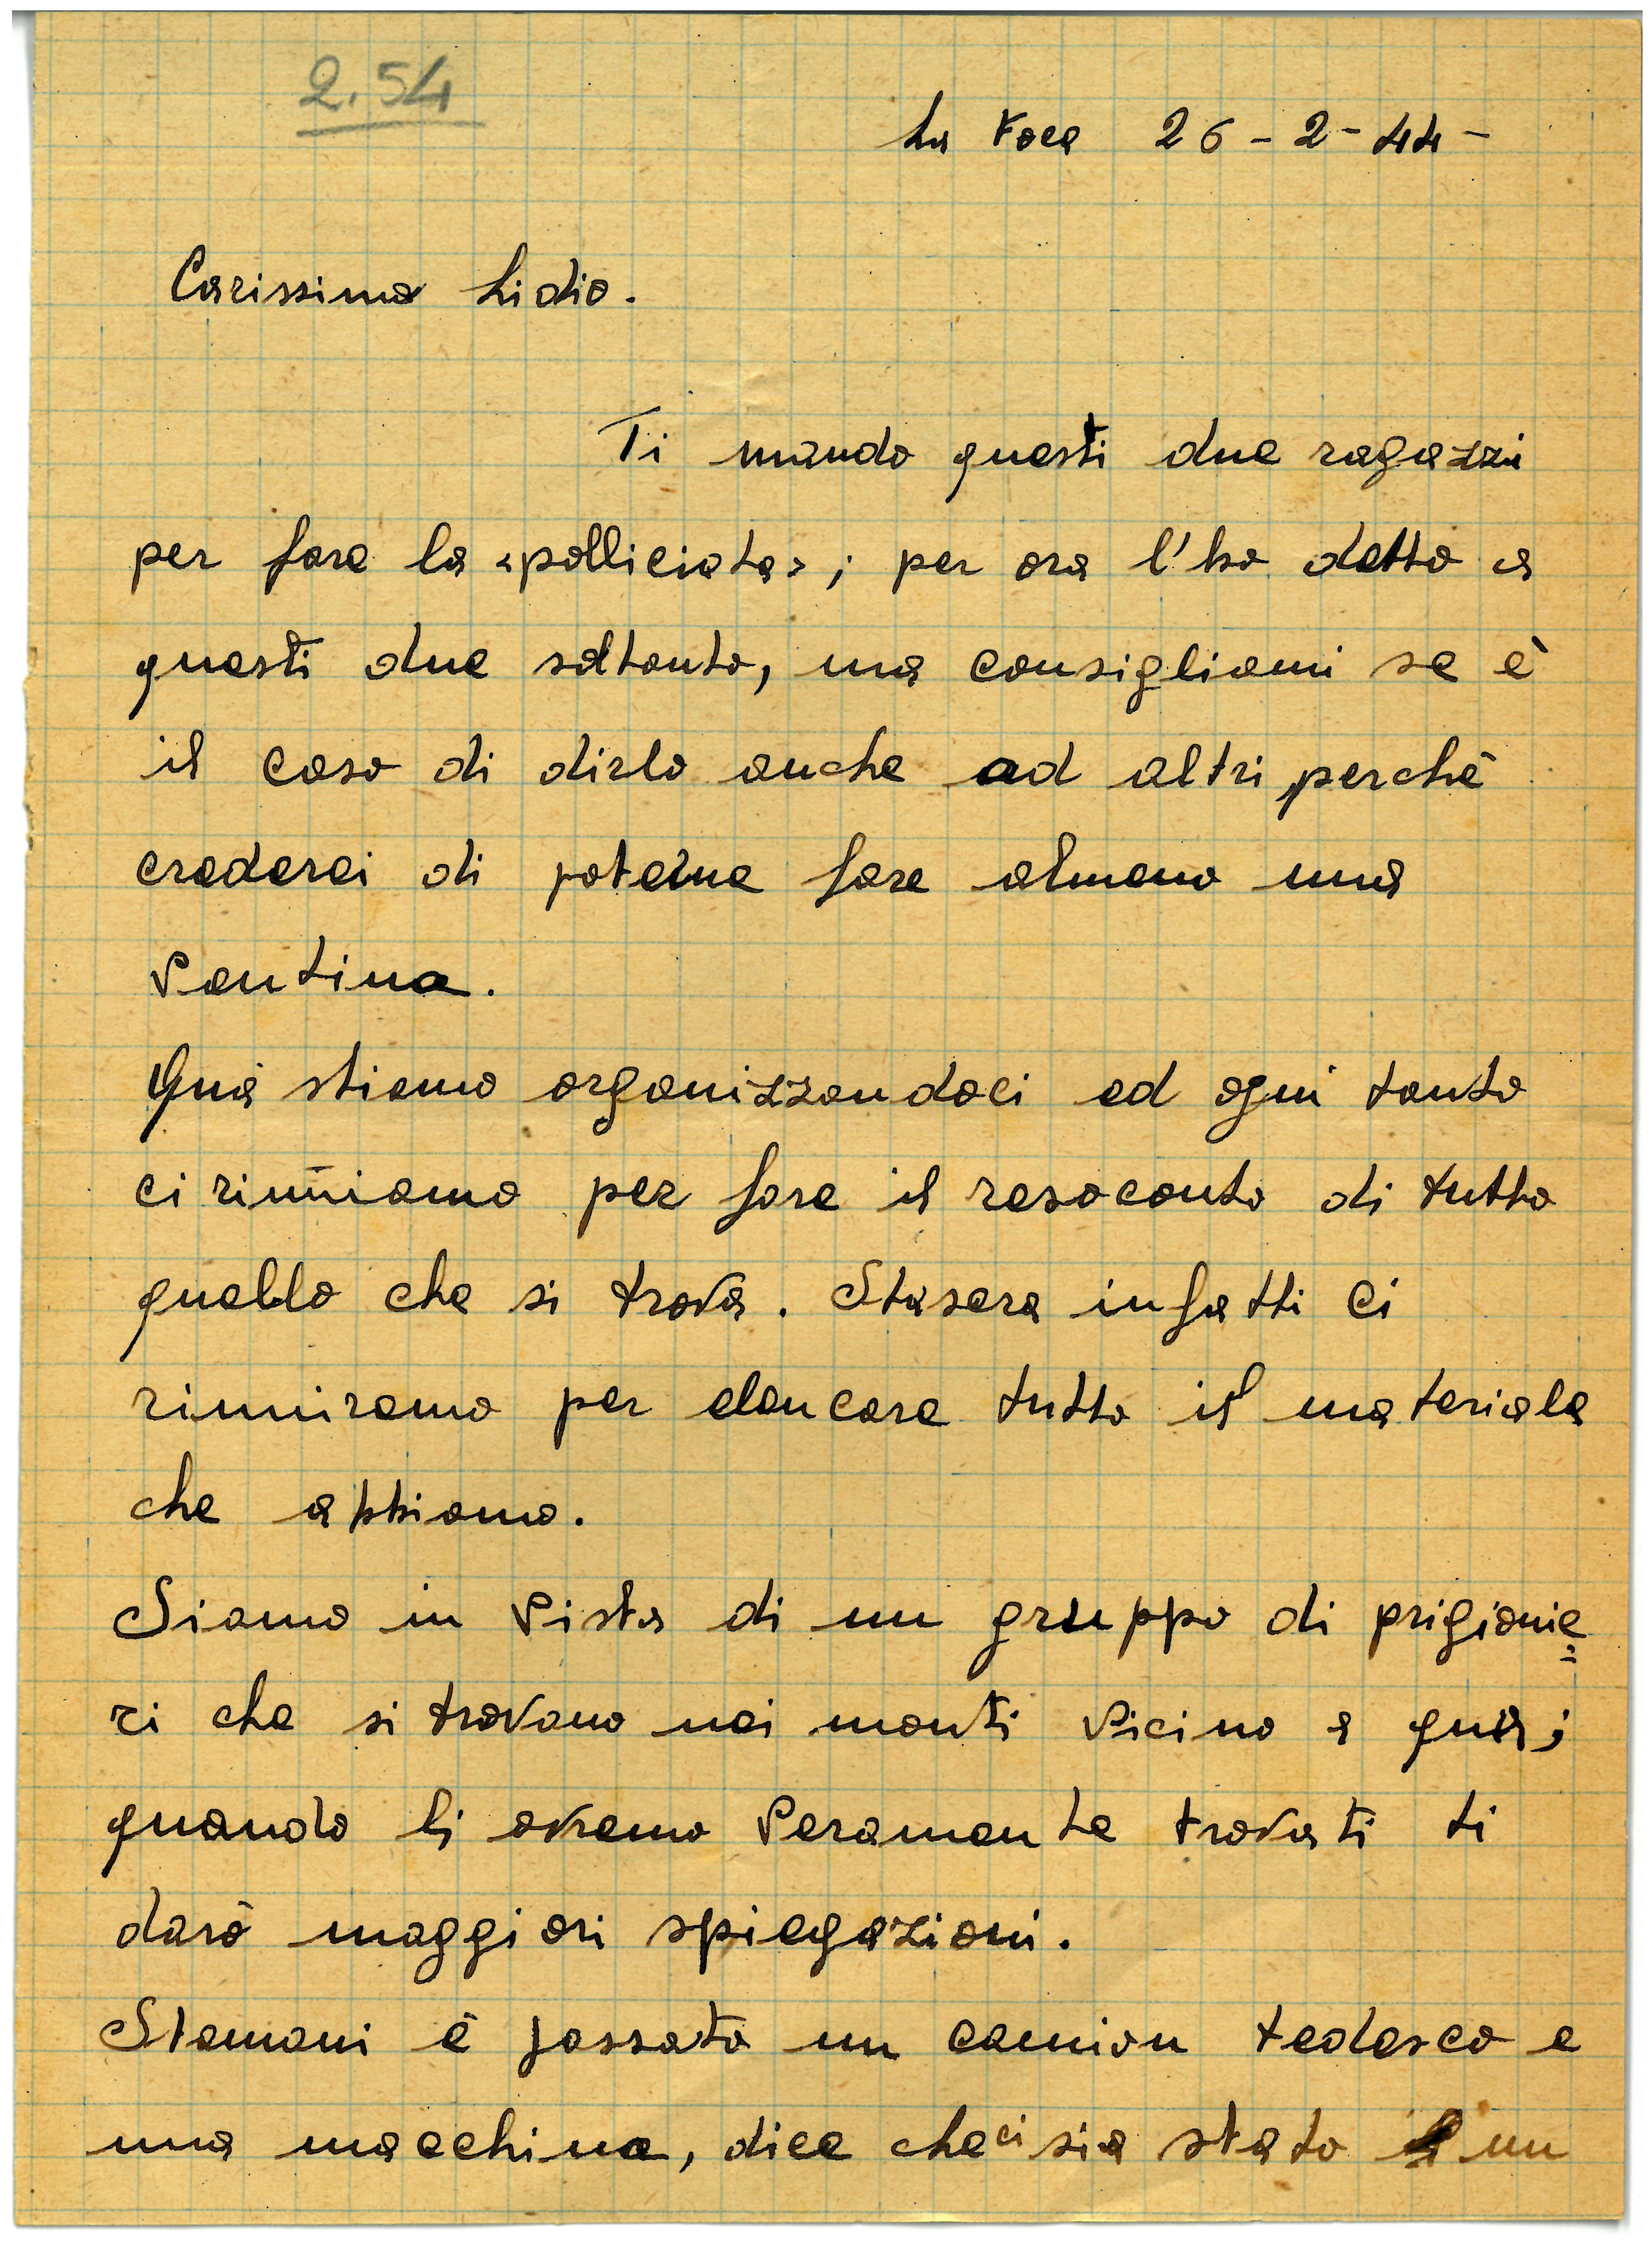 2.54
La Foce 26-2-44-
Carissimo Lidio.
Ti mando questi due ragazzi
per fare la «polliciata»; per ora l'ho detto a
questi due soltanto, ma consigliami se è
il caso di dirlo anche ad altri, perchè
crederei di poterne fare almeno una
ventina.
Quà stiamo organizzandoci ed ogni tanto
ci riuniamo per fare il resoconto di tutto
quello che si trova. Stasera infatti ci
riuniremo per elencare tutto il materiale
che abbiamo.
Siamo in vista di un gruppo di prigionie=
ri che si trovano nei monti vicino a quà;
quando li avremo veramente trovati ti
darò maggiori spiegazioni.
Stamani è passato un camion tedesco e
una macchina, dice che ci sia stato un